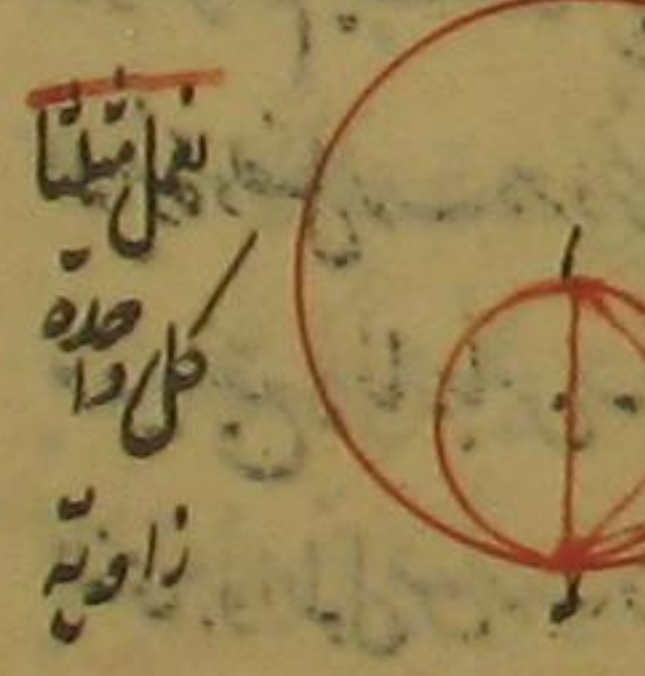 نعمل مثلثا
كل واحدة
زاويتيه
ا